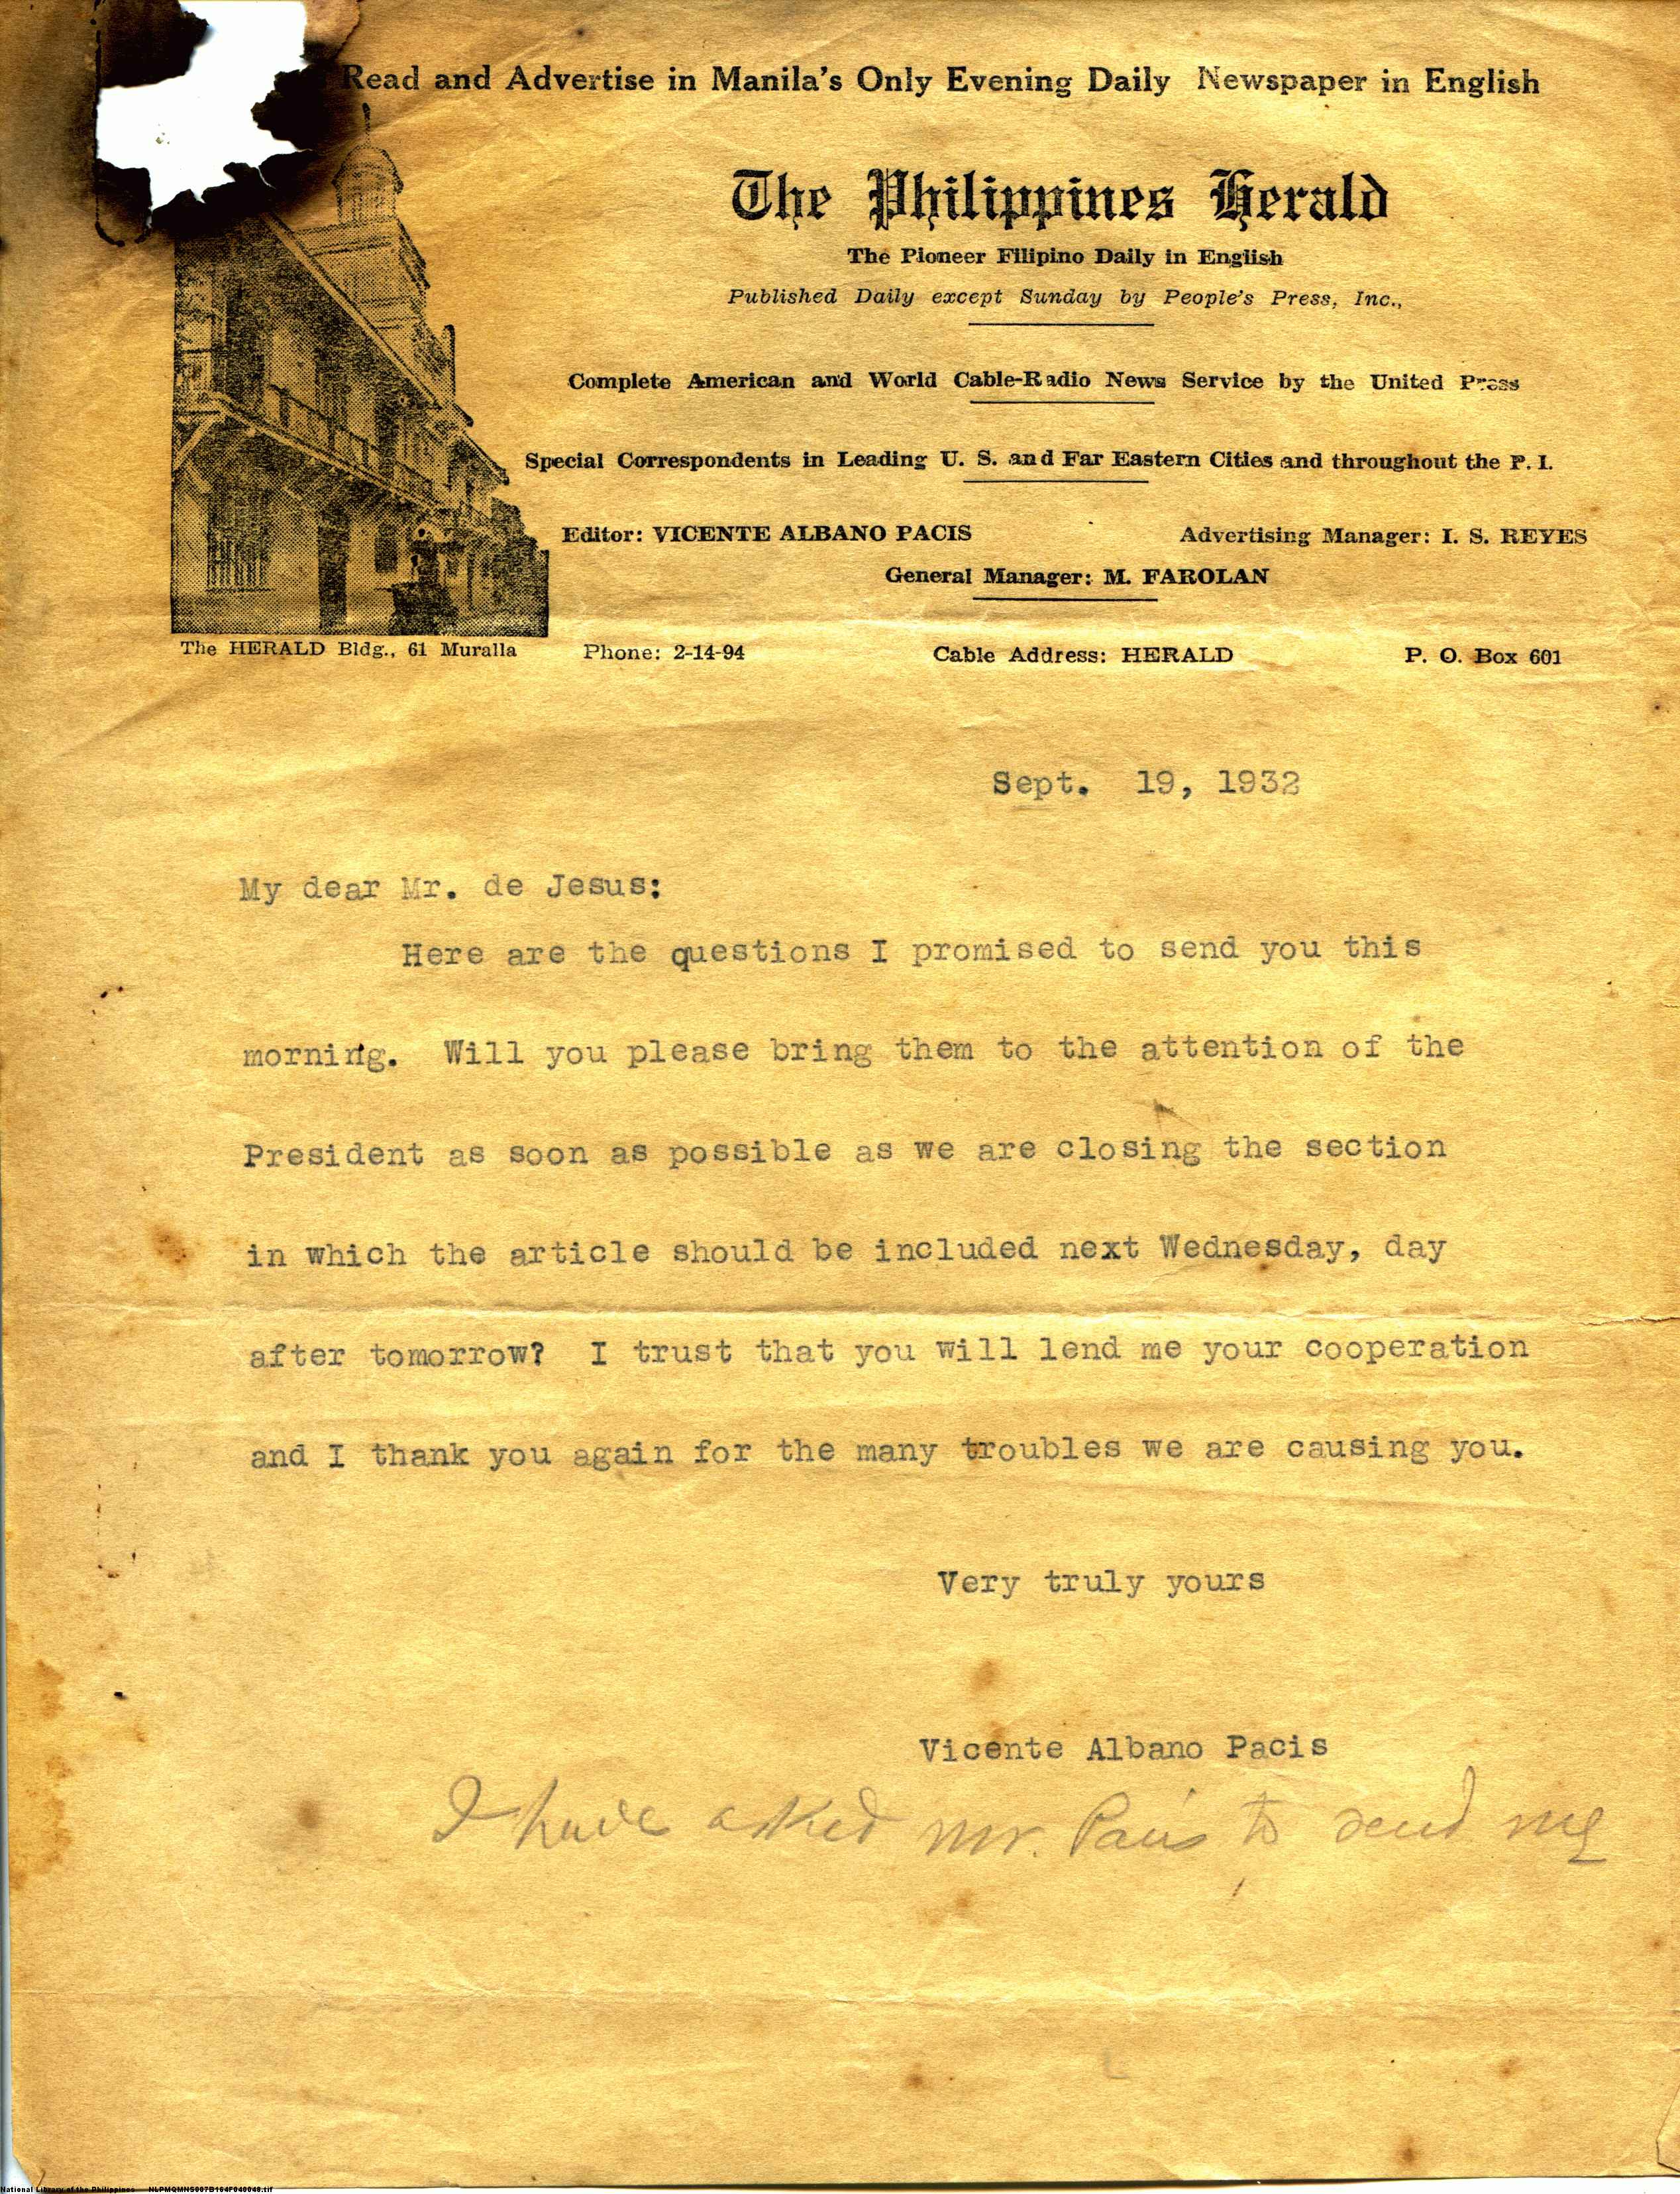 Read and Advertise in Manila's Only Evening Daily Newspaper in English
The Philippines Herald
The Pioneer Filipino Daily in English
Published Daily except Sunday by People's Press, Inc.,
Complete American and World Cable-Radio News Service by the United Press
Special Correspondents in Leading U. S. and Far Eastern Cities and throughout the P. I.
Editor: VICENTE ALBANO PACIS Advertising Manager: I. S. REYES
General Manager: M. FAROLAN
The HERALD Bldg., 61 Muralla Phone: 2-14-94 Cable Address: HERALD P. O. Box 601
Sept. 19, 1932
My dear Mr. de Jesus:
Here are the questions I promised to send you this
morning. Will you please bring them to the attention of the
President as soon as possible as we are closing the section
in which the article should be included next Wednesday, day
after tomorrow? I trust that you will lend me your cooperation
and I thank you again for the many troubles we are causing you.
Very truly yours
Vicente Albano Pacis
I have asked Mr. Pacis to send me
National Library of the Philippines NLPMQMNS007B164F040048.tif